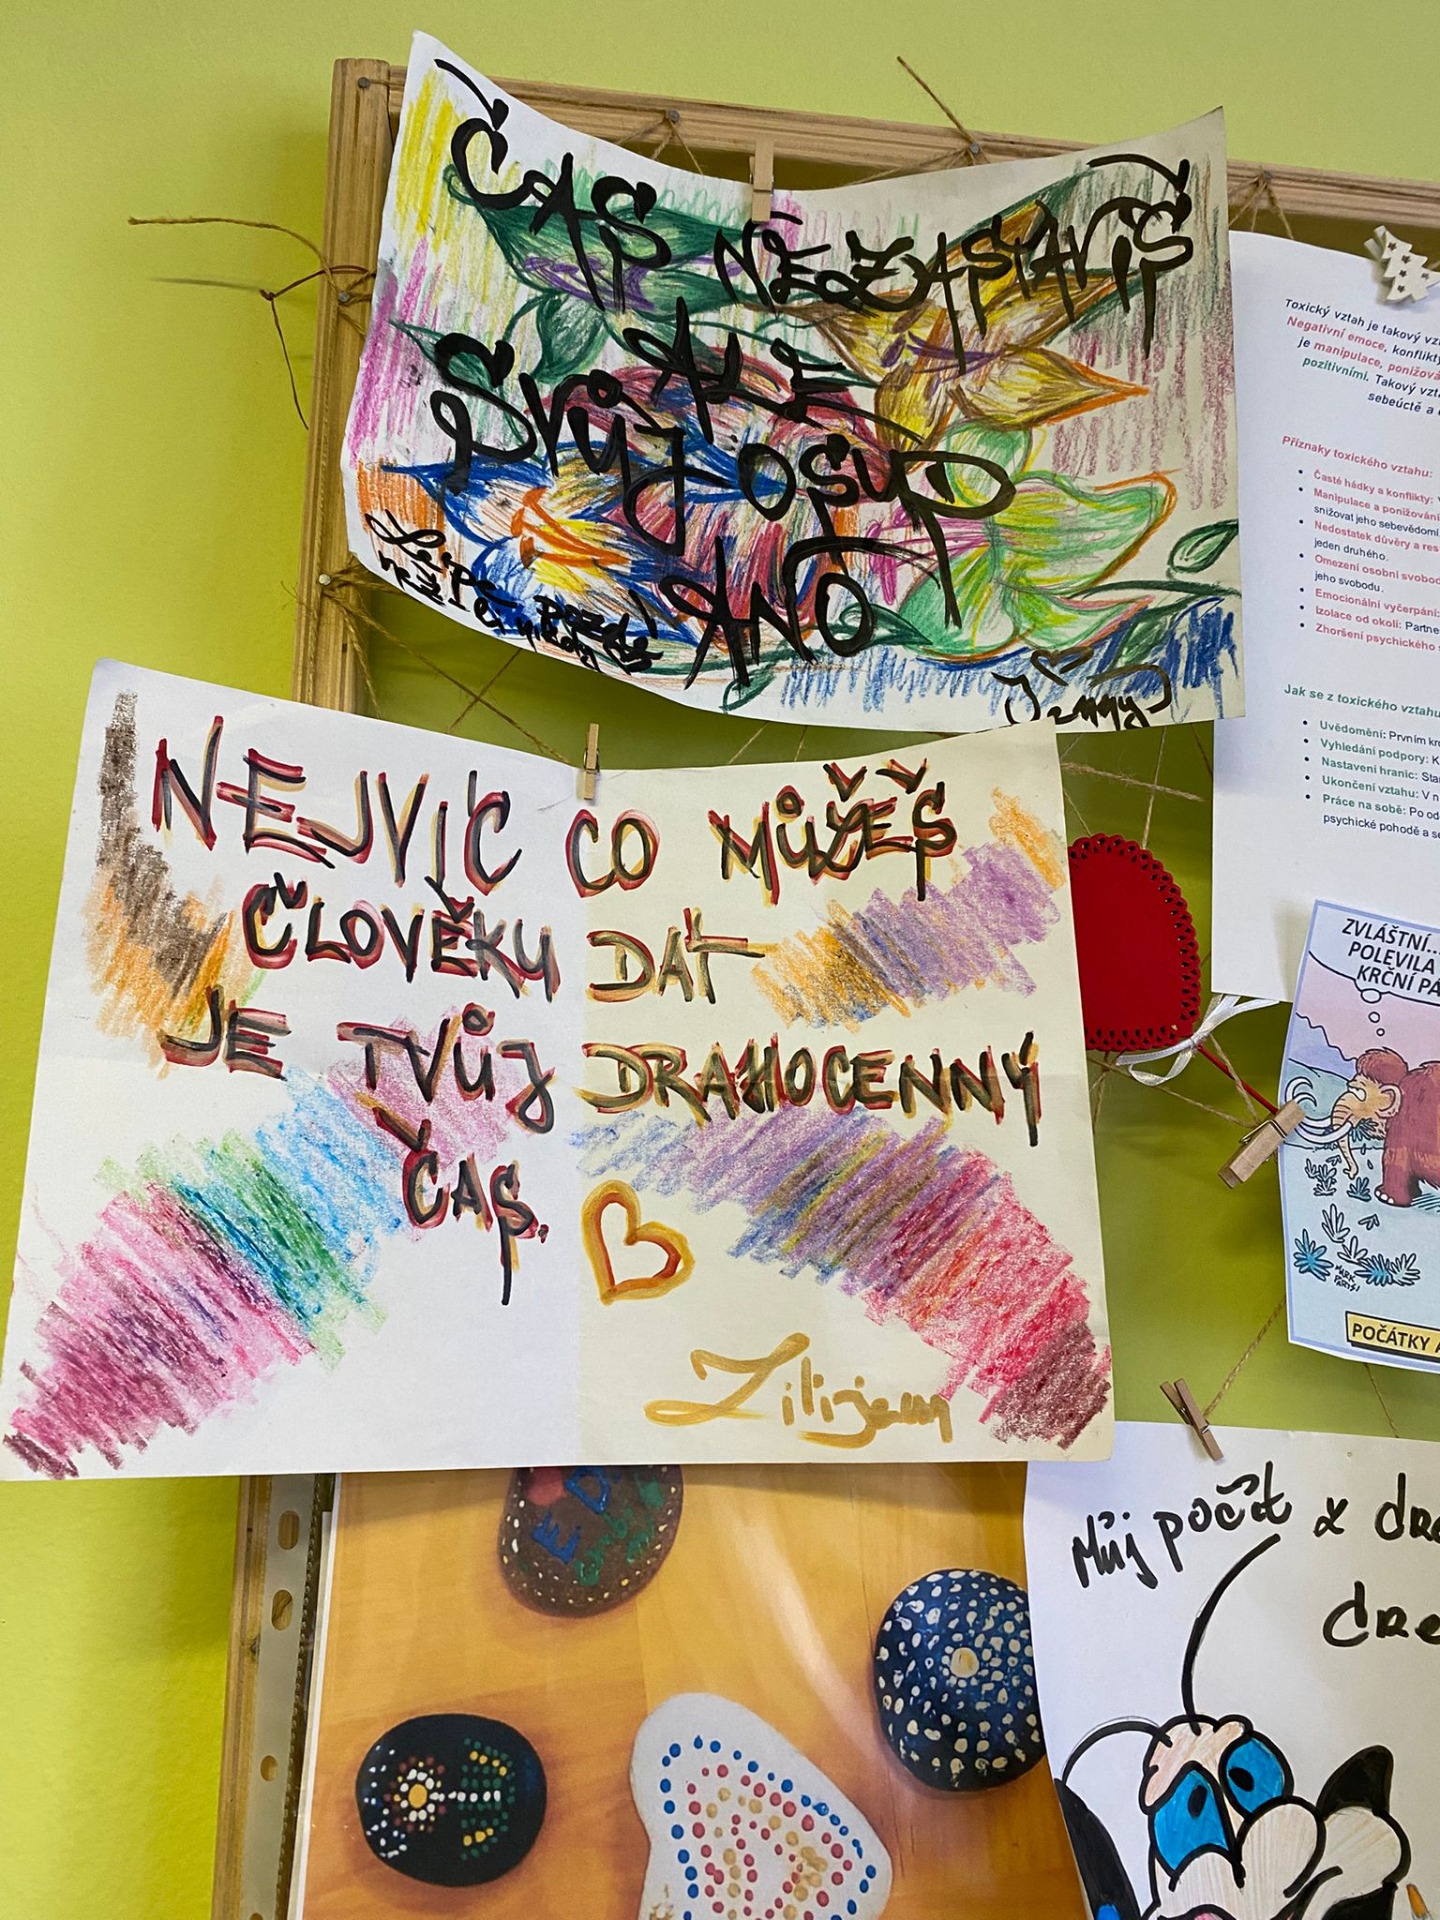 ČAS NEZASTAVÍŠ
ALE
SVŮJ OSUD
ANO
Lépe pozdě
než
NEJVÍC CO MŮŽEŠ
ČLOVĚKU DÁT
JE TVŮJ DRAHOCENNÝ
ČAS.
Toxický vztah je takový
Negativní emoce, konflikty
je manipulace,
pozitivními. Takový
sebeúctě a
Příznaky toxického vztahu:
Časté hádky a konflikty:
Manipulace a ponižování
snižovat jeho sebevědomí.
Nedostatek důvěry a
jeden druhého.
Omezení osobní
jeho svobodu.
Emocionální vyčerpání:
Izolace od okolí:
Zhoršení psychického
Jak se z toxického vztahu
Uvědomění: Prvním
Vyhledání podpory:
Nastavení hranic:
Ukončení vztahu: V
Práce na sobě: Po
psychické pohodě a
ZVLÁŠTNÍ...
POLEVILA
KRČNÍ
MARK
PARISI
POČÁTKY
Můj pocit z